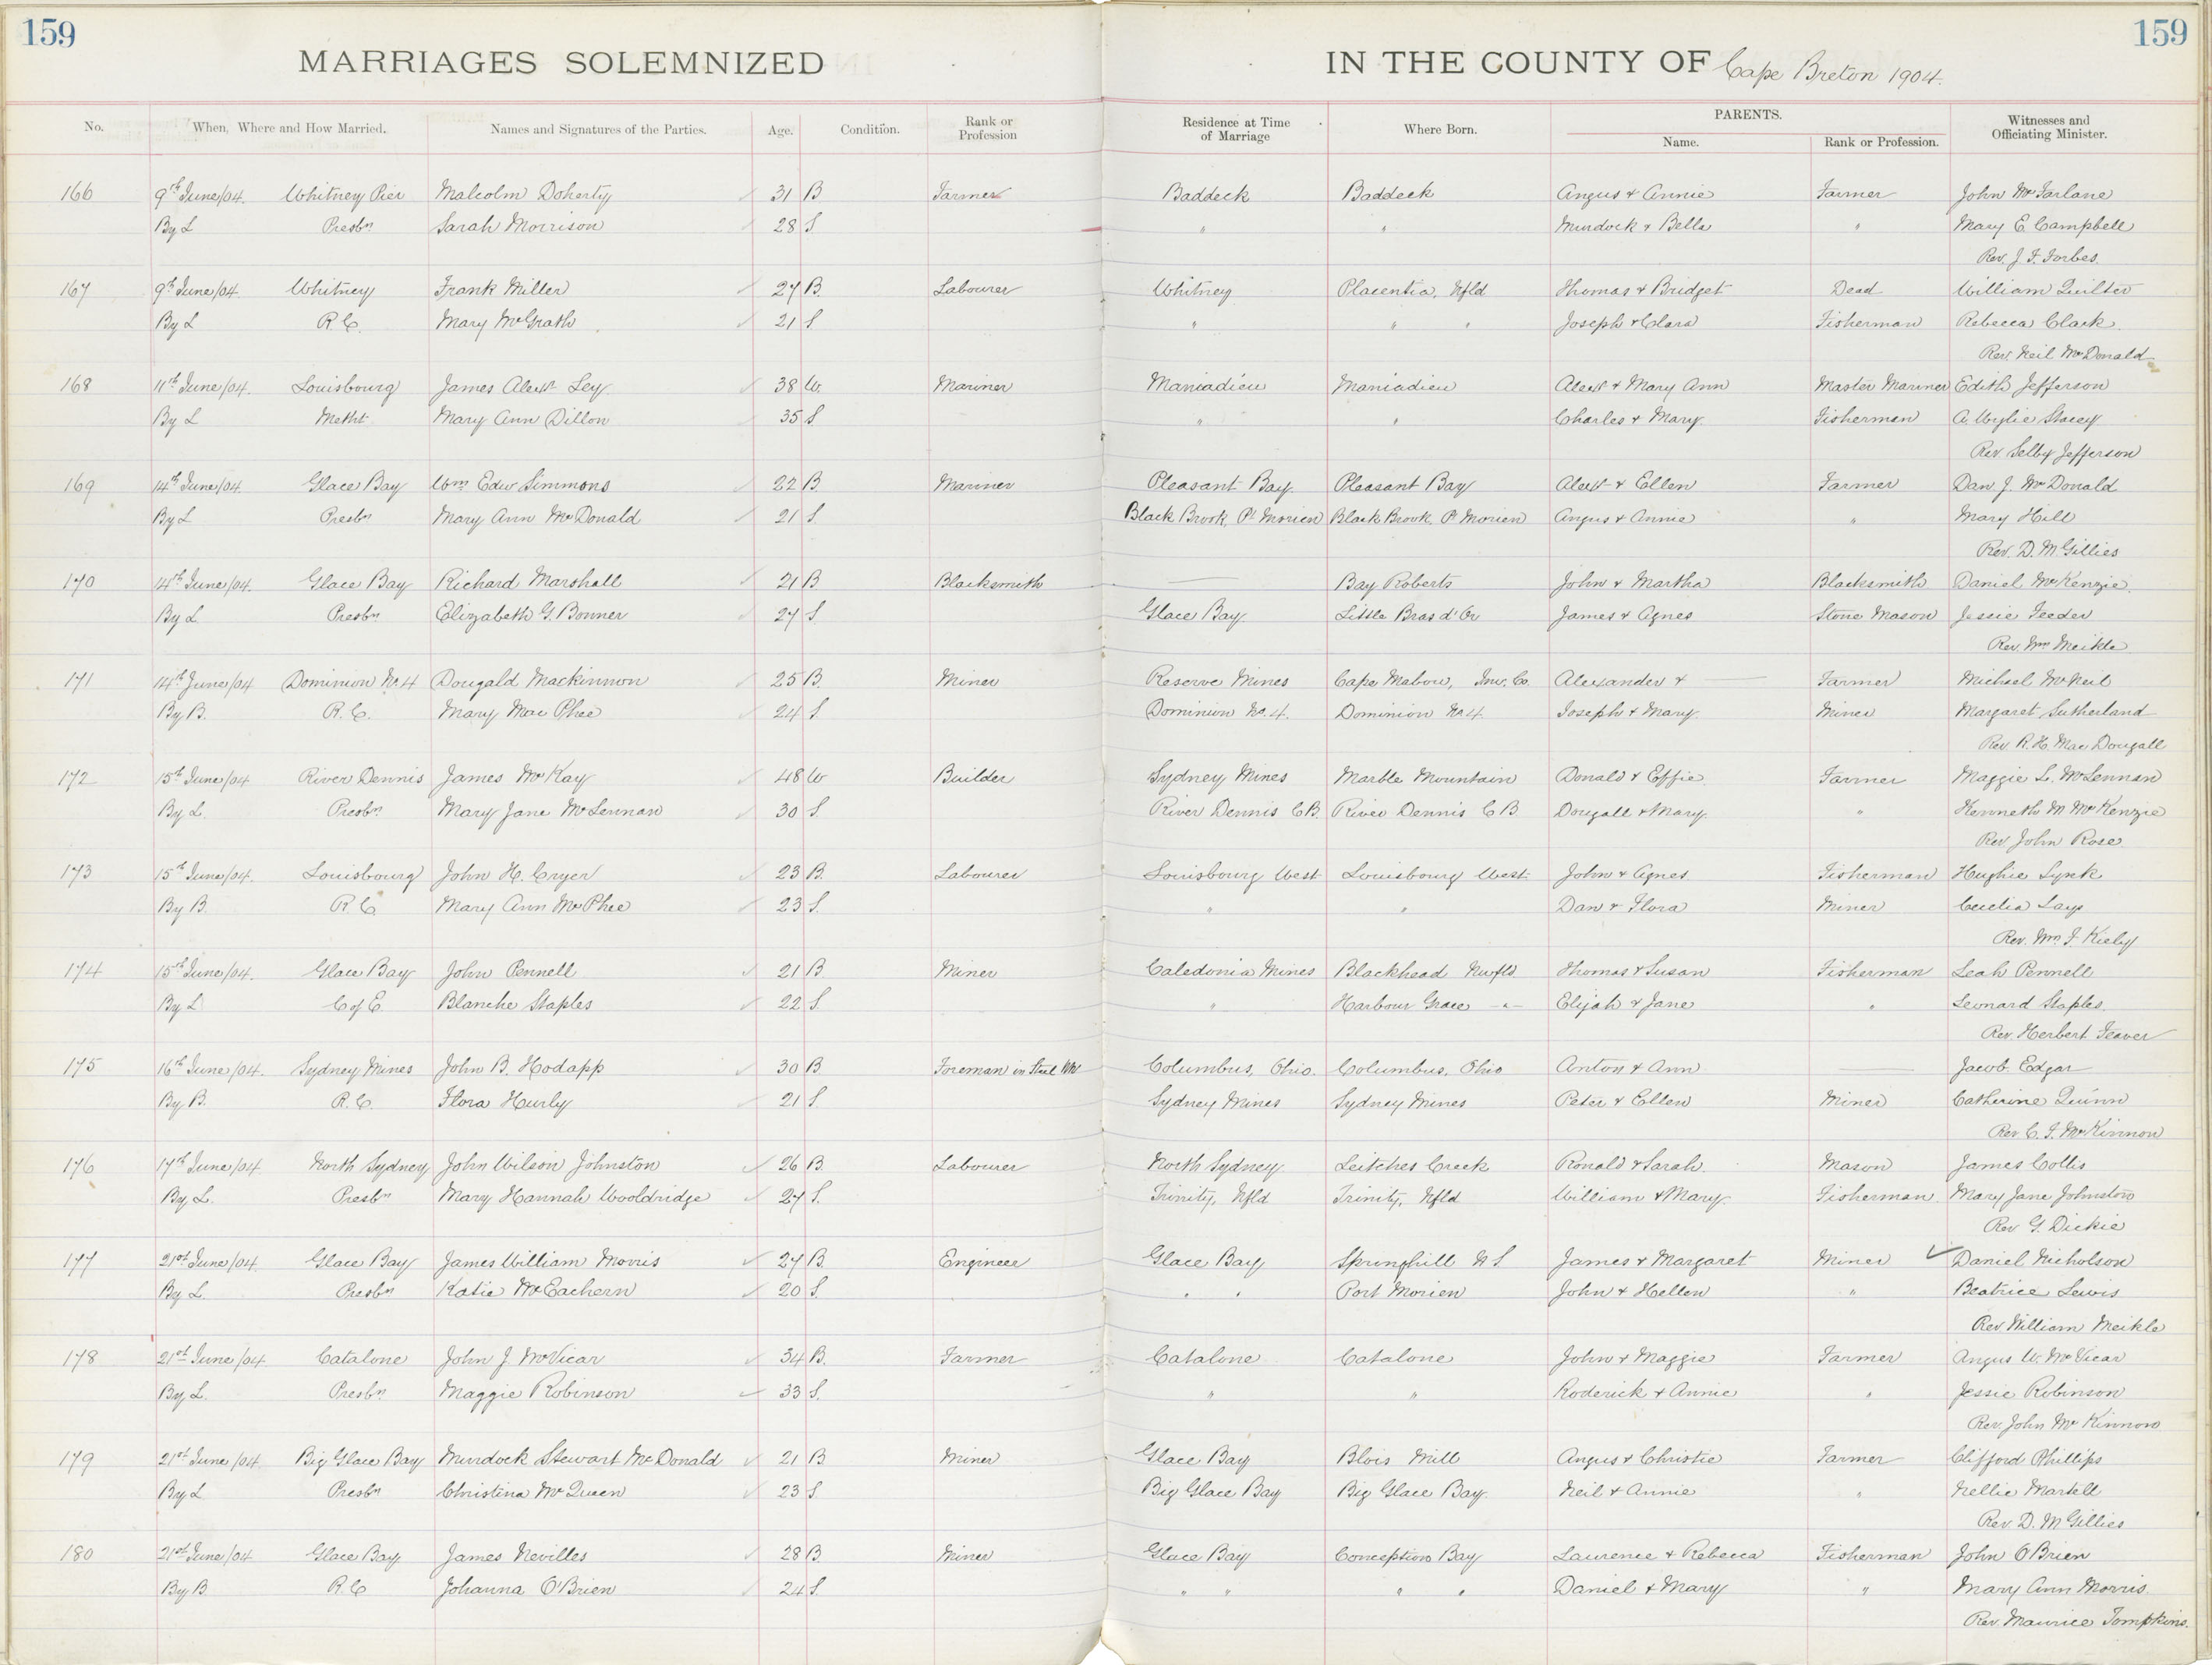 159
159
MARRIAGES SOLEMNIZED
IN THE COUNTY OF Cape Breton 1904.
No. When, Where and How Married. Names and Signatures of the Parties. Age. Condition. Rank or Profession Residence at Time of Marriage Where Born. PARENTS. Name. Rank or Profession. Witnesses and Officiating Minister.
166 9th June/04. Whitney Pier Malcolm Doherty 31 B Farmer Baddeck Baddeck Angus & Annie Farmer John McFarlane
By L Presbn Sarah Morrison 28 S " " Murdock & Bella " Mary E Campbell
Rev. J. F. Forbes.
167 9th June/04. Whitney Frank Miller 27 B. Labourer Whitney Placentia, Nfld Thomas & Bridget Dead William Quilter
By L R.C. Mary McGrath 21 S " " " Joseph & Clara Fisherman Rebecca Clark.
Rev. Neil McDonald
168 11th June/04. Louisbourg James Alexr Ley 38 W. Mariner Maniadieu Maniadieu Alexr & Mary Ann Master Mariner Edith Jefferson
By L Metht Mary Ann Dillon 35 S " " Charles & Mary Fisherman A. Wylie Stacey
Rev Selby Jefferson
169 14th June/04. Glace Bay Wm Edw Simmons 22 B. Mariner Pleasant Bay Pleasant Bay Alexr & Ellen Farmer Dan J. McDonald
By L Presbn Mary Ann McDonald 21 S Black Brook, Pt Morien Black Brook, Pt Morien Angus & Annie " Mary Hill
Rev. D. M Gillies
170 14th June/04. Glace Bay Richard Marshall 21 B Blacksmith Bay Roberts John & Martha Blacksmith Daniel McKenzie.
By L Presbn Elizabeth G. Bonner 27 S Glace Bay Little Bras d'Or James & Agnes Stone Mason Jessie Feeder
Rev. Wm Meikle
171 14th June/04 Dominion No 4 Dougald Mackinnon 25 B. Miner Reserve Mines Cape Mabou, Inv. Co. Alexander & Farmer Michael McNeil
By B. R.C. Mary MacPhee 24 S Dominion No. 4. Dominion No 4 Joseph & Mary Miner Margaret Sutherland
Rev. R. H. MacDougall
172 15th June/04 River Dennis James McKay 48 W Builder Sydney Mines Marble Mountain Donald & Effie Farmer Maggie L. McLennan
By L. Presbn Mary Jane McLennan 30 S River Dennis C.B. River Dennis C B Dougall & Mary " Kenneth M McKenzie
Rev. John Rose
173 15th June/04. Louisbourg John H. Cryer 23 B. Labourer Louisbourg West Louisbourg West John & Agnes Fisherman Hughie Lynk
By B. R.C. Mary Ann McPhee 23 S. " " Dan & Flora Miner Cecelia Says
Rev. Wm F Kiely
174 15th June/04. Glace Bay John Pennell 21 B Miner Caledonia Mines Blackhead Newfld Thomas & Susan Fisherman Leah Pennell
By L C of E. Blanche Staples 22 S. " Harbour Grace " Elijah & Jane " Leonard Staples.
Rev. Herbert Feaver
175 16th June/04. Sydney Mines John B. Hodapp 30 B Foreman in Steel Wks Columbus, Ohio. Columbus, Ohio Anton & Ann Jacob Edgar
By B. R.C. Flora Hurly 21 S. Sydney Mines Sydney Mines Peter & Ellen Miner Catherine Quinn
Rev C. F. McKinnon
176 17th June/04. North Sydney John Wilson Johnston 26 B. Labourer North Sydney Leitches Creek Ronald & Sarah Mason James Collis
By L. Presbn Mary Hannah Wooldridge 27 S. Trinity, Nfld Trinity, Nfld William & Mary Fisherman Mary Jane Johnston
Rev G. Dickie
177 21st June/04. Glace Bay James William Morris 27 B. Engineer Glace Bay Springhill N S James & Margaret Miner Daniel Nicholson
By L. Presbn Katie McEachern 20 S. " " Port Morien John & Hellen " Beatrice Lewis
Rev. William Meikle
178 21st June/04. Catalone John J. McVicar 34 B. Farmer Catalone Catalone John & Maggie Farmer Angus W. McVicar
By L. Presbn Maggie Robinson 33 S. " " Roderick & Annie " Jessie Robinson
Rev. John McKinnon
179 21st June/04. Big Glace Bay Murdock Stewart McDonald 21 B Miner Glace Bay Blois Mill Angus & Christie Farmer Clifford Phillips
By L Presbn Christina McQueen 23 S. Big Glace Bay Big Glace Bay. Neil & Annie " Nellie Martell
Rev. D. M Gillies
180 21st June/04 Glace Bay James Nevilles 28 B. Miner Glace Bay Conception Bay Laurence & Rebecca Fisherman John O'Brien
By B. R.C Johanna O'Brien 24 S. " " " " Daniel & Mary " Mary Ann Morris.
Rev. Maurice Tompkins.